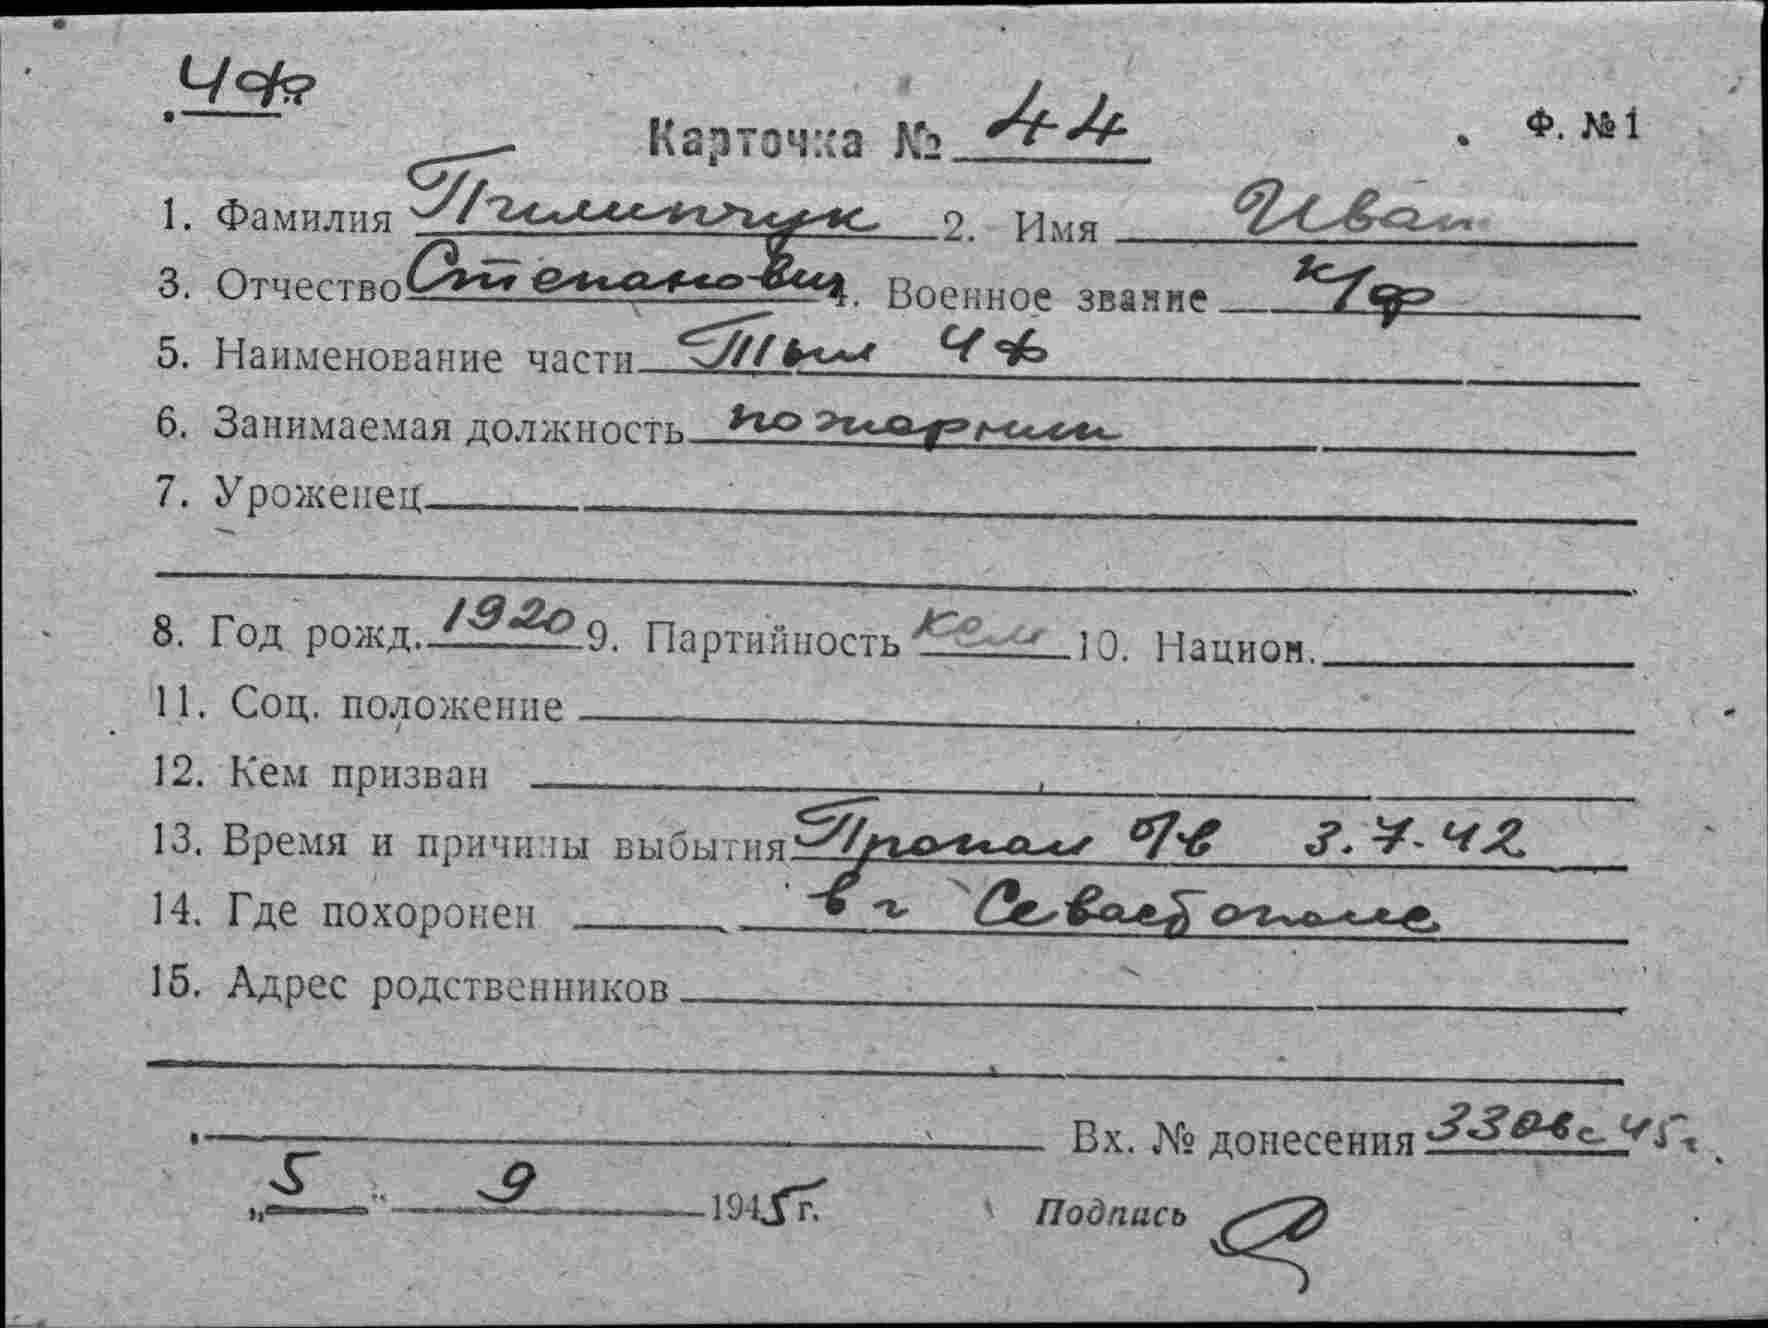 ЧФ
Карточка № 44 Ф. № 1
1. Фамилия Пилипчук 2. Имя Иван
3. Отчество Степанович 4. Военное звание к/ф
5. Наименование части Тыл ЧФ
6. Занимаемая должность пожарник
7. Уроженец
8. Год рожд. 1920 9. Партийность 10. Национ.
11. Соц. положение
12. Кем призван
13. Время и причины выбытия Пропал б/в 3.7.42
14. Где похоронен в г Севастополе
15. Адрес родственников
Вх. № донесения 45г.
„5" 9 1945г. Подпись